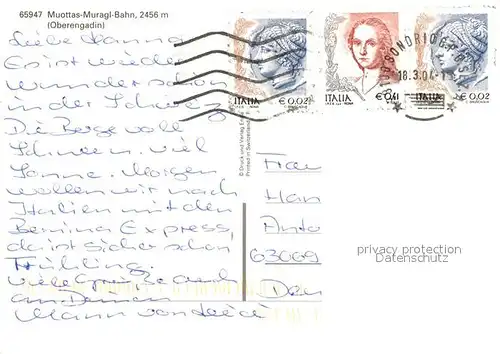 65947 Muottas-Muragl-Bahn, 2456 m
(Oberengadin)
Liebe Hanna
Es ist wieder
wunderschön
in der Schweiz
Die Berge voll
Schnee, viel
Sonne. Morgen
wollen wir nach
Italien mit dem
Bernina Express,
da ist sicher schon
Frühling.
viele Grüße auch
an Deinen
Mann von
ITALIA € 0,02
ITALIA € 0,41
ITALIA € 0,02
SONDRIO
18.3.04
© Druck und Verlag
Printed in Switzerland
Frau
Han
Anto
63069
privacy protection
Datenschutz